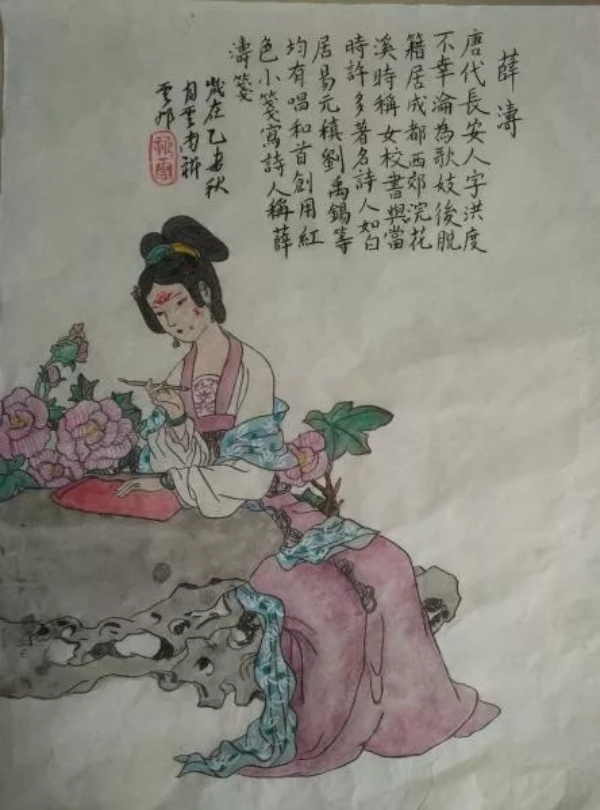 薛濤
唐代長安人字洪度
不幸淪為歌妓後脫
籍居成都西郊浣花
溪時稱女校書與當
時許多著名詩人如白
居易元稹劉禹錫等
均有唱和首創用紅
色小箋寫詩人稱薛
濤箋
歲在乙秋
月雲南祈